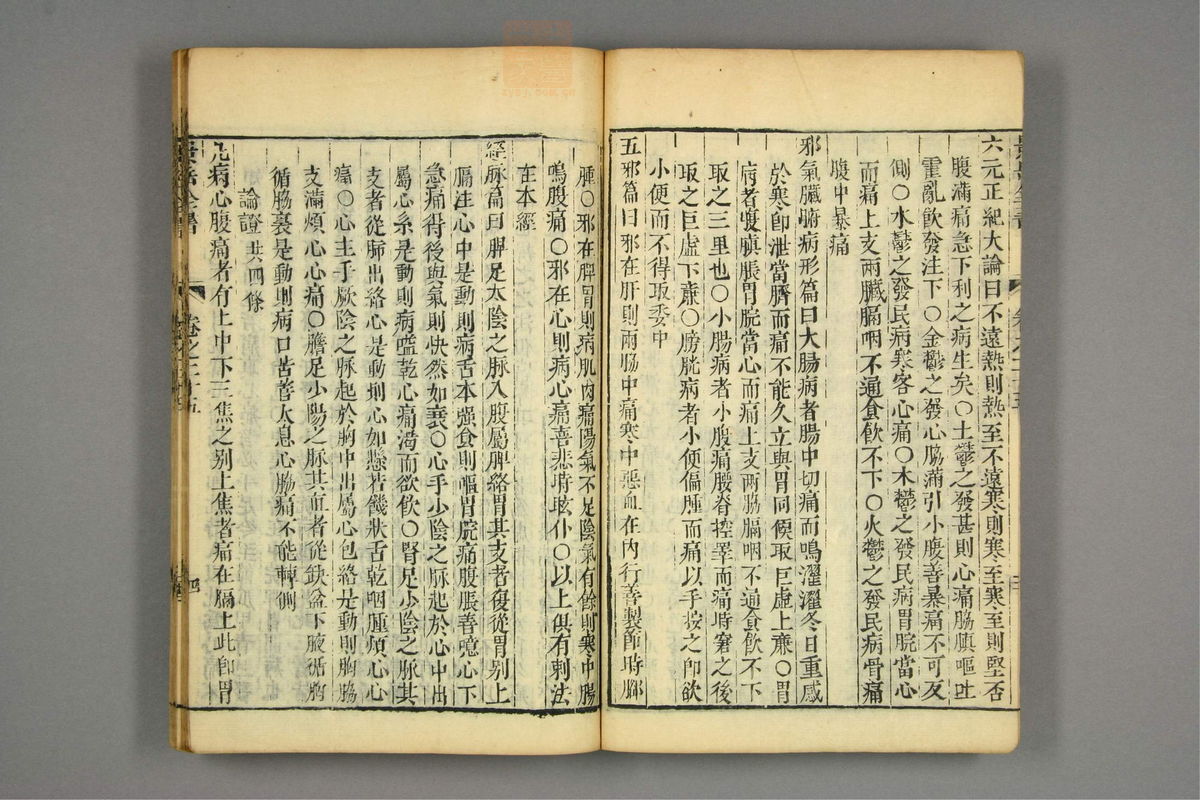 六元正紀大論曰不遠熱則熱至不遠寒則寒至寒至則堅否
腹滿痛急下利之病生矣〇土鬱之發甚則心痛脇䐜嘔吐
霍亂飲發注下〇金鬱之發心脇滿引小腹善暴痛不可反
側〇水鬱之發民病寒客心痛〇木鬱之發民病胃脘當心
而痛上支兩臟膈咽不通食飲不下〇火鬱之發民病骨痛
腹中暴痛
邪氣臟腑病形篇曰大腸病者腸中切痛而鳴濯濯冬日重感
於寒卽泄當臍而痛不能久立與胃同候取巨虛上廉〇胃
病者腹䐜脹胃脘當心而痛上支兩脇膈咽不通食飲不下
取之三里也〇小腸病者小腹痛腰脊控睪而痛時窘之後
取之巨虛下廉〇膀胱病者小便偏腫而痛以手按之卽欲
小便而不得取委中
五邪篇曰邪在肝則兩脇中痛寒中惡血在內行善掣節時脚
腫〇邪在脾胃則病肌肉痛陽氣不足陰氣有餘則寒中腸
鳴腹痛〇邪在心則病心痛喜悲時眩仆〇以上俱有刺法
在本經
經脉篇曰脾足太陰之脉入腹屬脾絡胃其支者復從胃别上
膈注心中是動則病舌本強食則嘔胃脘痛腹脹善噫心下
急痛得後與氣則快然如衰〇心手少陰之脉起於心中出
屬心系是動則病嗌乾心痛渴而欲飲〇腎足少陰之脉其
支者從肺出絡心是動則心如懸若饑狀舌乾咽腫煩心心
痛〇心主手厥陰之脉起於胸中出屬心包絡是動則胸脇
支滿煩心心痛〇膽足少陽之脉其直者從缺盆下腋循胸
循脇裏是動則病口苦善大息心脇痛不能轉側
論證共四條
凡病心腹痛者有上中下三焦之别上焦者痛在膈上此卽胃
景岳全書 卷之二十五 四